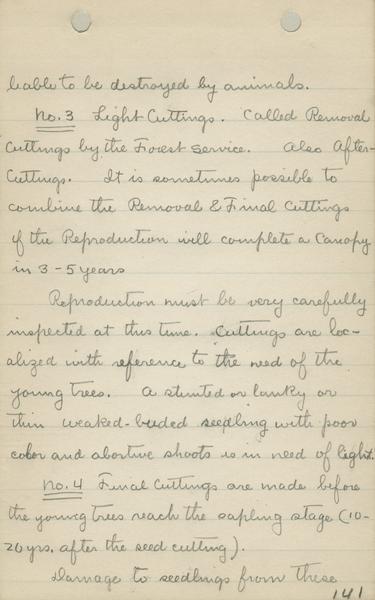 liable to be destroyed by animals.
No. 3 Light Cuttings. Called Removal
Cuttings by the Forest Service. Also After-
Cuttings. It is sometimes possible to
combine the Removal & Final Cuttings
if the Reproduction will complete a Canopy
in 3-5 years
Reproduction must be very carefully
inspected at this time. Cuttings are loc-
alized with reference to the need of the
young trees. A stunted or lanky or
thin weaked-budded seedling with poor
color and abortive shoots is in need of light.
No. 4 Final Cuttings are made before
the young trees reach the sapling stage (10-
20 yrs. after the seed cutting).
Damage to seedlings from these
141